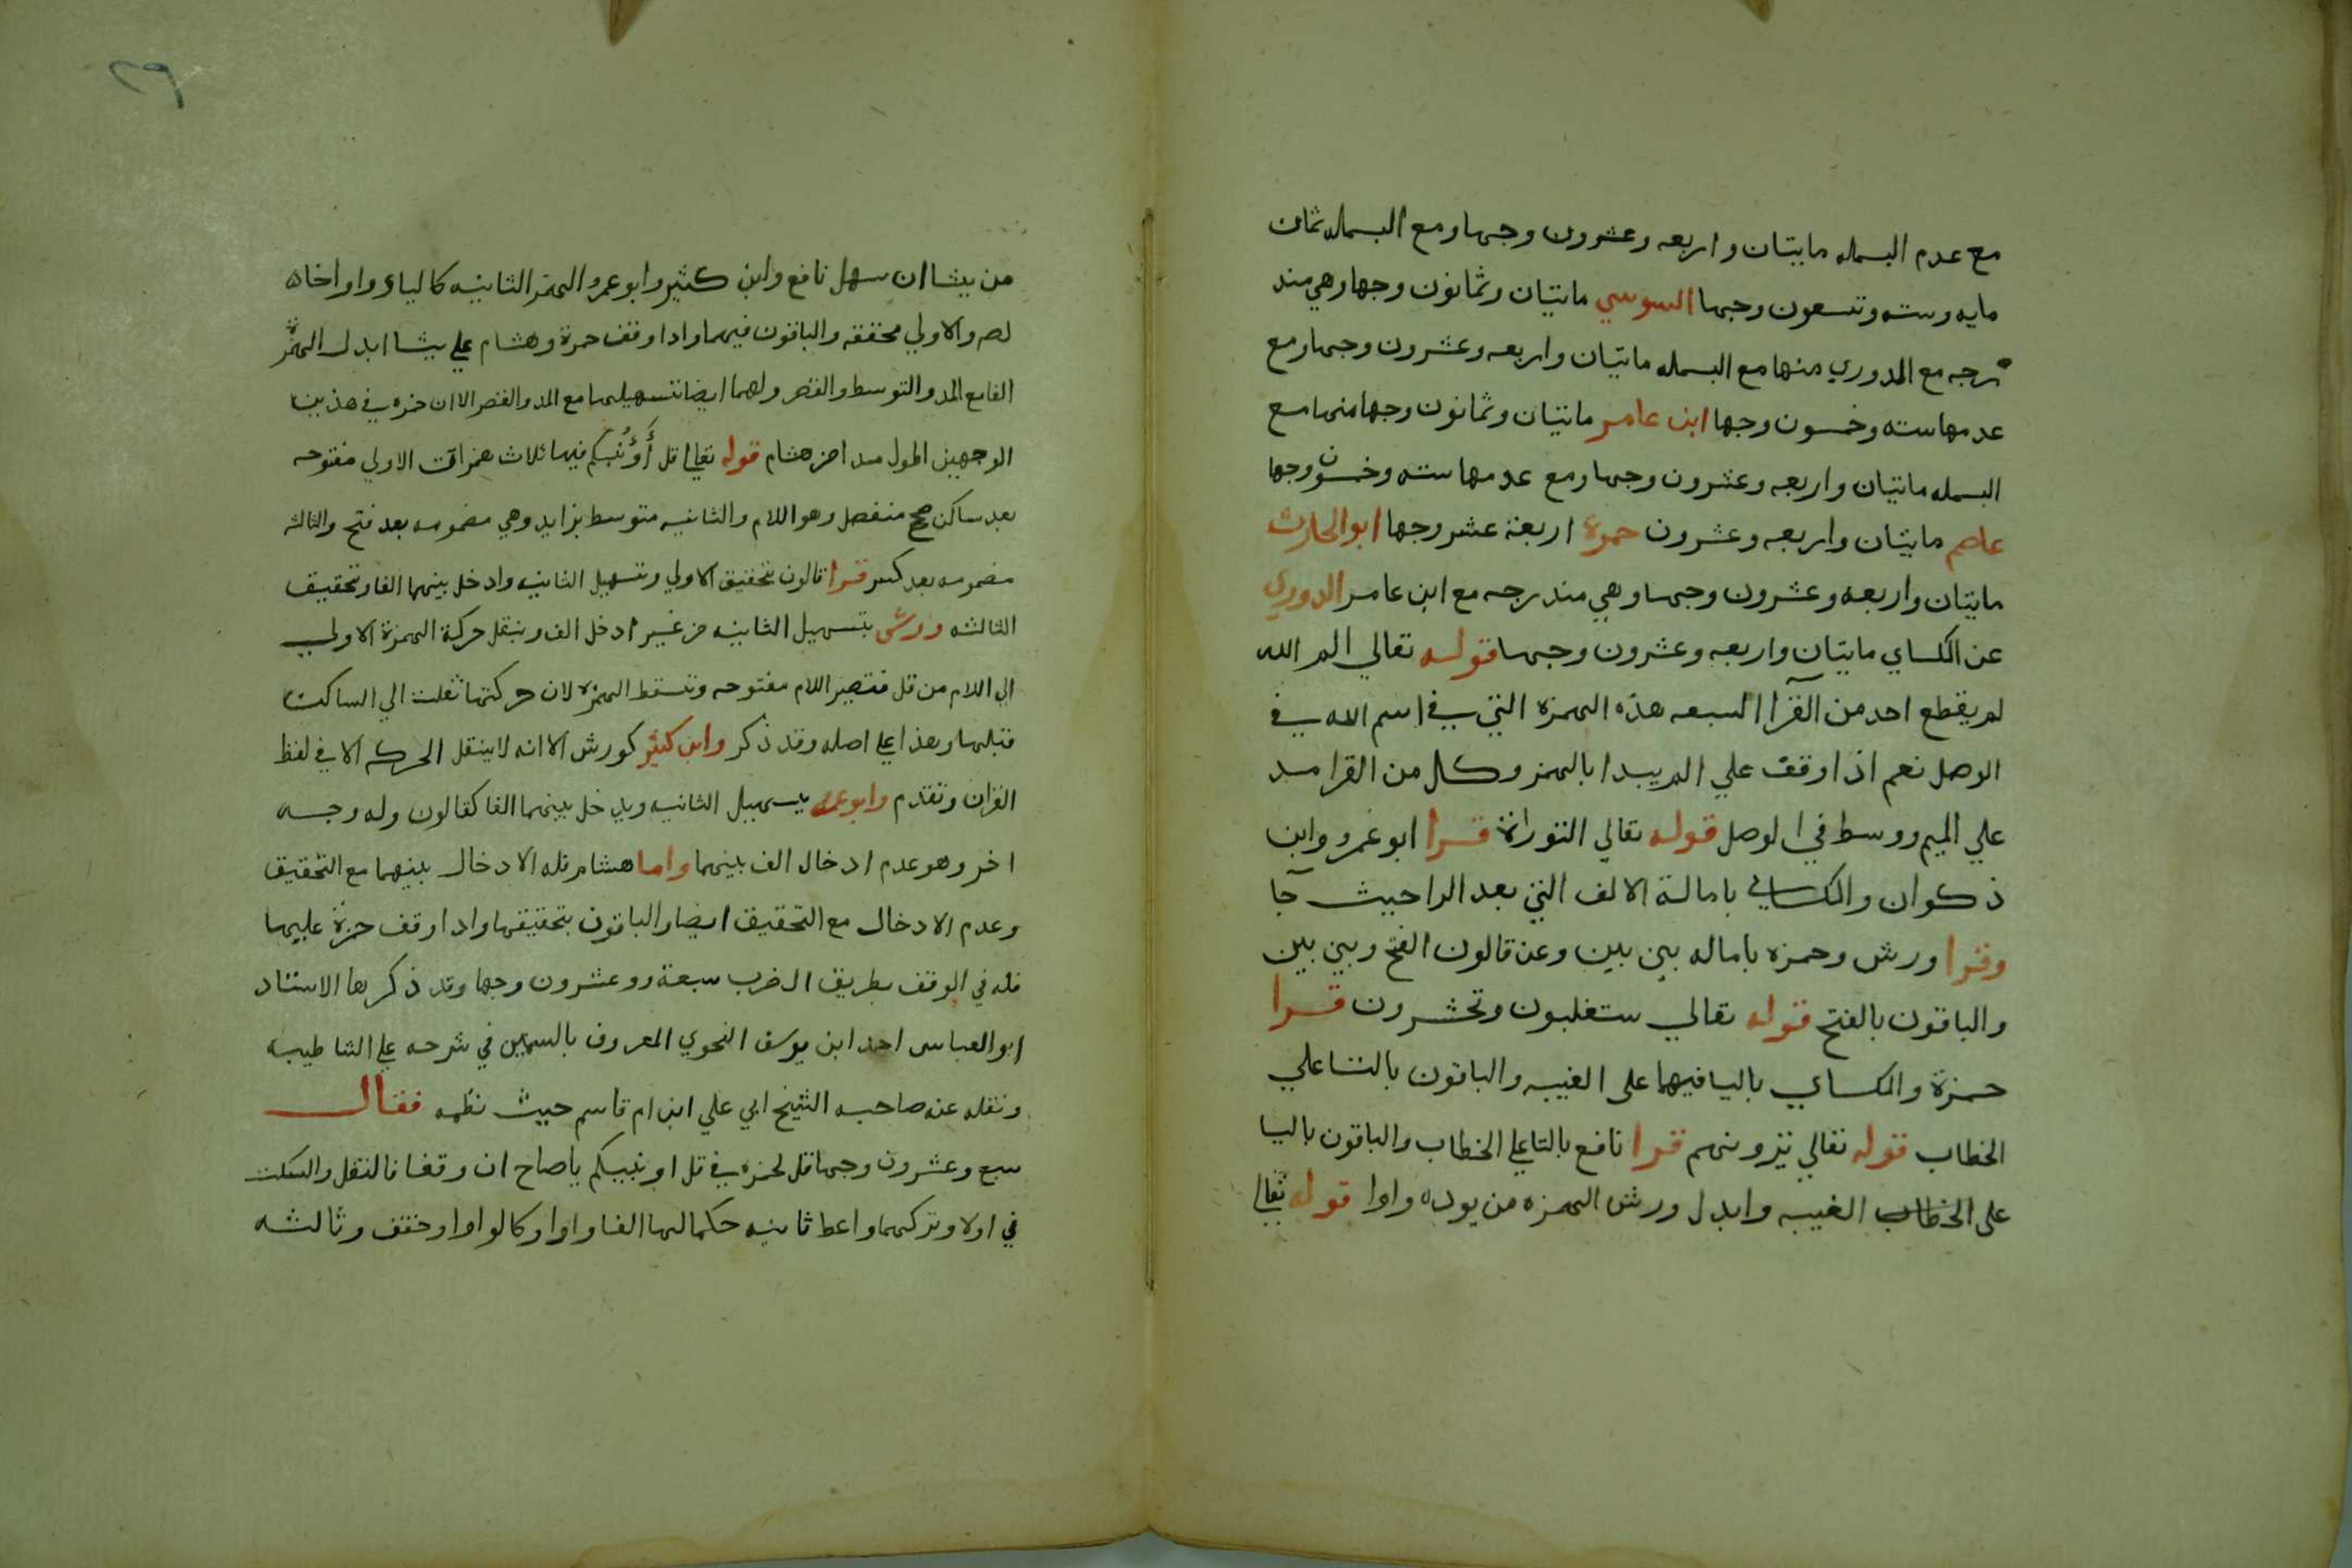 مع عدم البسمله مايتان واربعه وعشرون وجها ومع البسمله ثمان
مايه وسته وتسعون وجها السوسي مايتان وثمانون وجها وهي مند
رجه مع الدوري منها مع البسمله مايتان واربعه وعشرون وجها ومع
عدمها سته وخمسون وجها ابن عامر مايتان وثمانون وجها منها مع
البسمله مايتان واربعه وعشرون وجها ومع عدمها سته وخمسون وجها
عاصم مايتان واربعه وعشرون حمزة اربعة عشر وجها ابو الحارث
مايتان واربعه وعشرون وجها وهي مندرجه مع ابن عامر الدوري
عن الكساي مايتان واربعه وعشرون وجها قوله تعالي الم الله
لم يقطع احد من القرا السبعه هذه الهمزه التي في اسم الله في
الوصل نعم اذا وقف علي الم يبدا بالهمز وكل من القرا مد
علي الميم ووسط في الوصل قوله تعالي التوراة قرا ابو عمرو وابن
ذكوان والكساي بامالة الالف التي بعد الرا حيث جا
وقرا ورش وحمزه باماله بين بين وعن قالون الفتح وبين بين
والباقون بالفتح قوله تعالي ستغلبون وتحشرون قرا
حمزة والكساي باليا فيهما على الغيبه والباقون بالتا علي
الخطاب قوله تعالي يرونهم قرا نافع بالتا علي الخطاب والباقون باليا
على الخطاب الغيبه وابدل ورش الهمزه من يوده واوا قوله تعالي
٢٩
من يشا ان سهل نافع وابن كثير وابو عمرو الهمز الثانيه كالياء واوا خا
لصه والاولي محققه والباقون فيهما واذا وقف حمزة وهشام علي يشا ابدل الهمزة
الفا مع المد والتوسط والقصر ولهما ايضا تسهيلها مع المد والقصر الا ان حمزه في هذين
الوجهين اطول مدا من هشام قوله تعالي قل أَؤُنبكم فيها ثلاث همزات الاولي مفتوحه
بعد ساكن صحيح منفصل وهو اللام والثانيه متوسط بزايد وهي مضمومه بعد فتح والثالثه
مضمومه بعد كسر قرا قالون بتحقيق الاولي وتسهيل الثانيه وادخل بينهما الفا وتحقيق
الثالثه وورش بتسهيل الثانيه من غير ادخل الف وينقل حركة الهمزة الاولي
الى اللام من قل فتصير اللام مفتوحه وتسقط الهمزه لان حركتها نقلت الي الساكن
قبلها وهذا علي اصله وقد ذكر وابن كثير كورش الا انه لا ينقل الحركه الا في لفظ
القران وتقدم وابو عمرو يسهيل الثانيه ويدخل بينهما الفا كقالون وله وجه
اخر وهو عدم ادخال الف بينهما واما هشام فله الادخال بينهما مع التحقيق
وعدم الادخال مع التحقيق ايضا والباقون بتحقيقها واذا وقف حمزة عليها
فله في الوقف بطريق الضرب سبعة وعشرون وجها وقد ذكرها الاستاد
ابو العباس احمد ابن يوسف النحوي المعروف بالسمين في شرحه علي الشاطبيه
ونقله عنه صاحبه الشيخ ابي علي ابن ام قاسم حيث نظمه فقال
سبع وعشرون وجها قل لحمزه في قل اونبيكم يا صاح ان وقفا فالنقل والسكت
في اولا وتركهما واعط ثانيه حكما لها الفا واوا وكالواو او حقق وثالثه